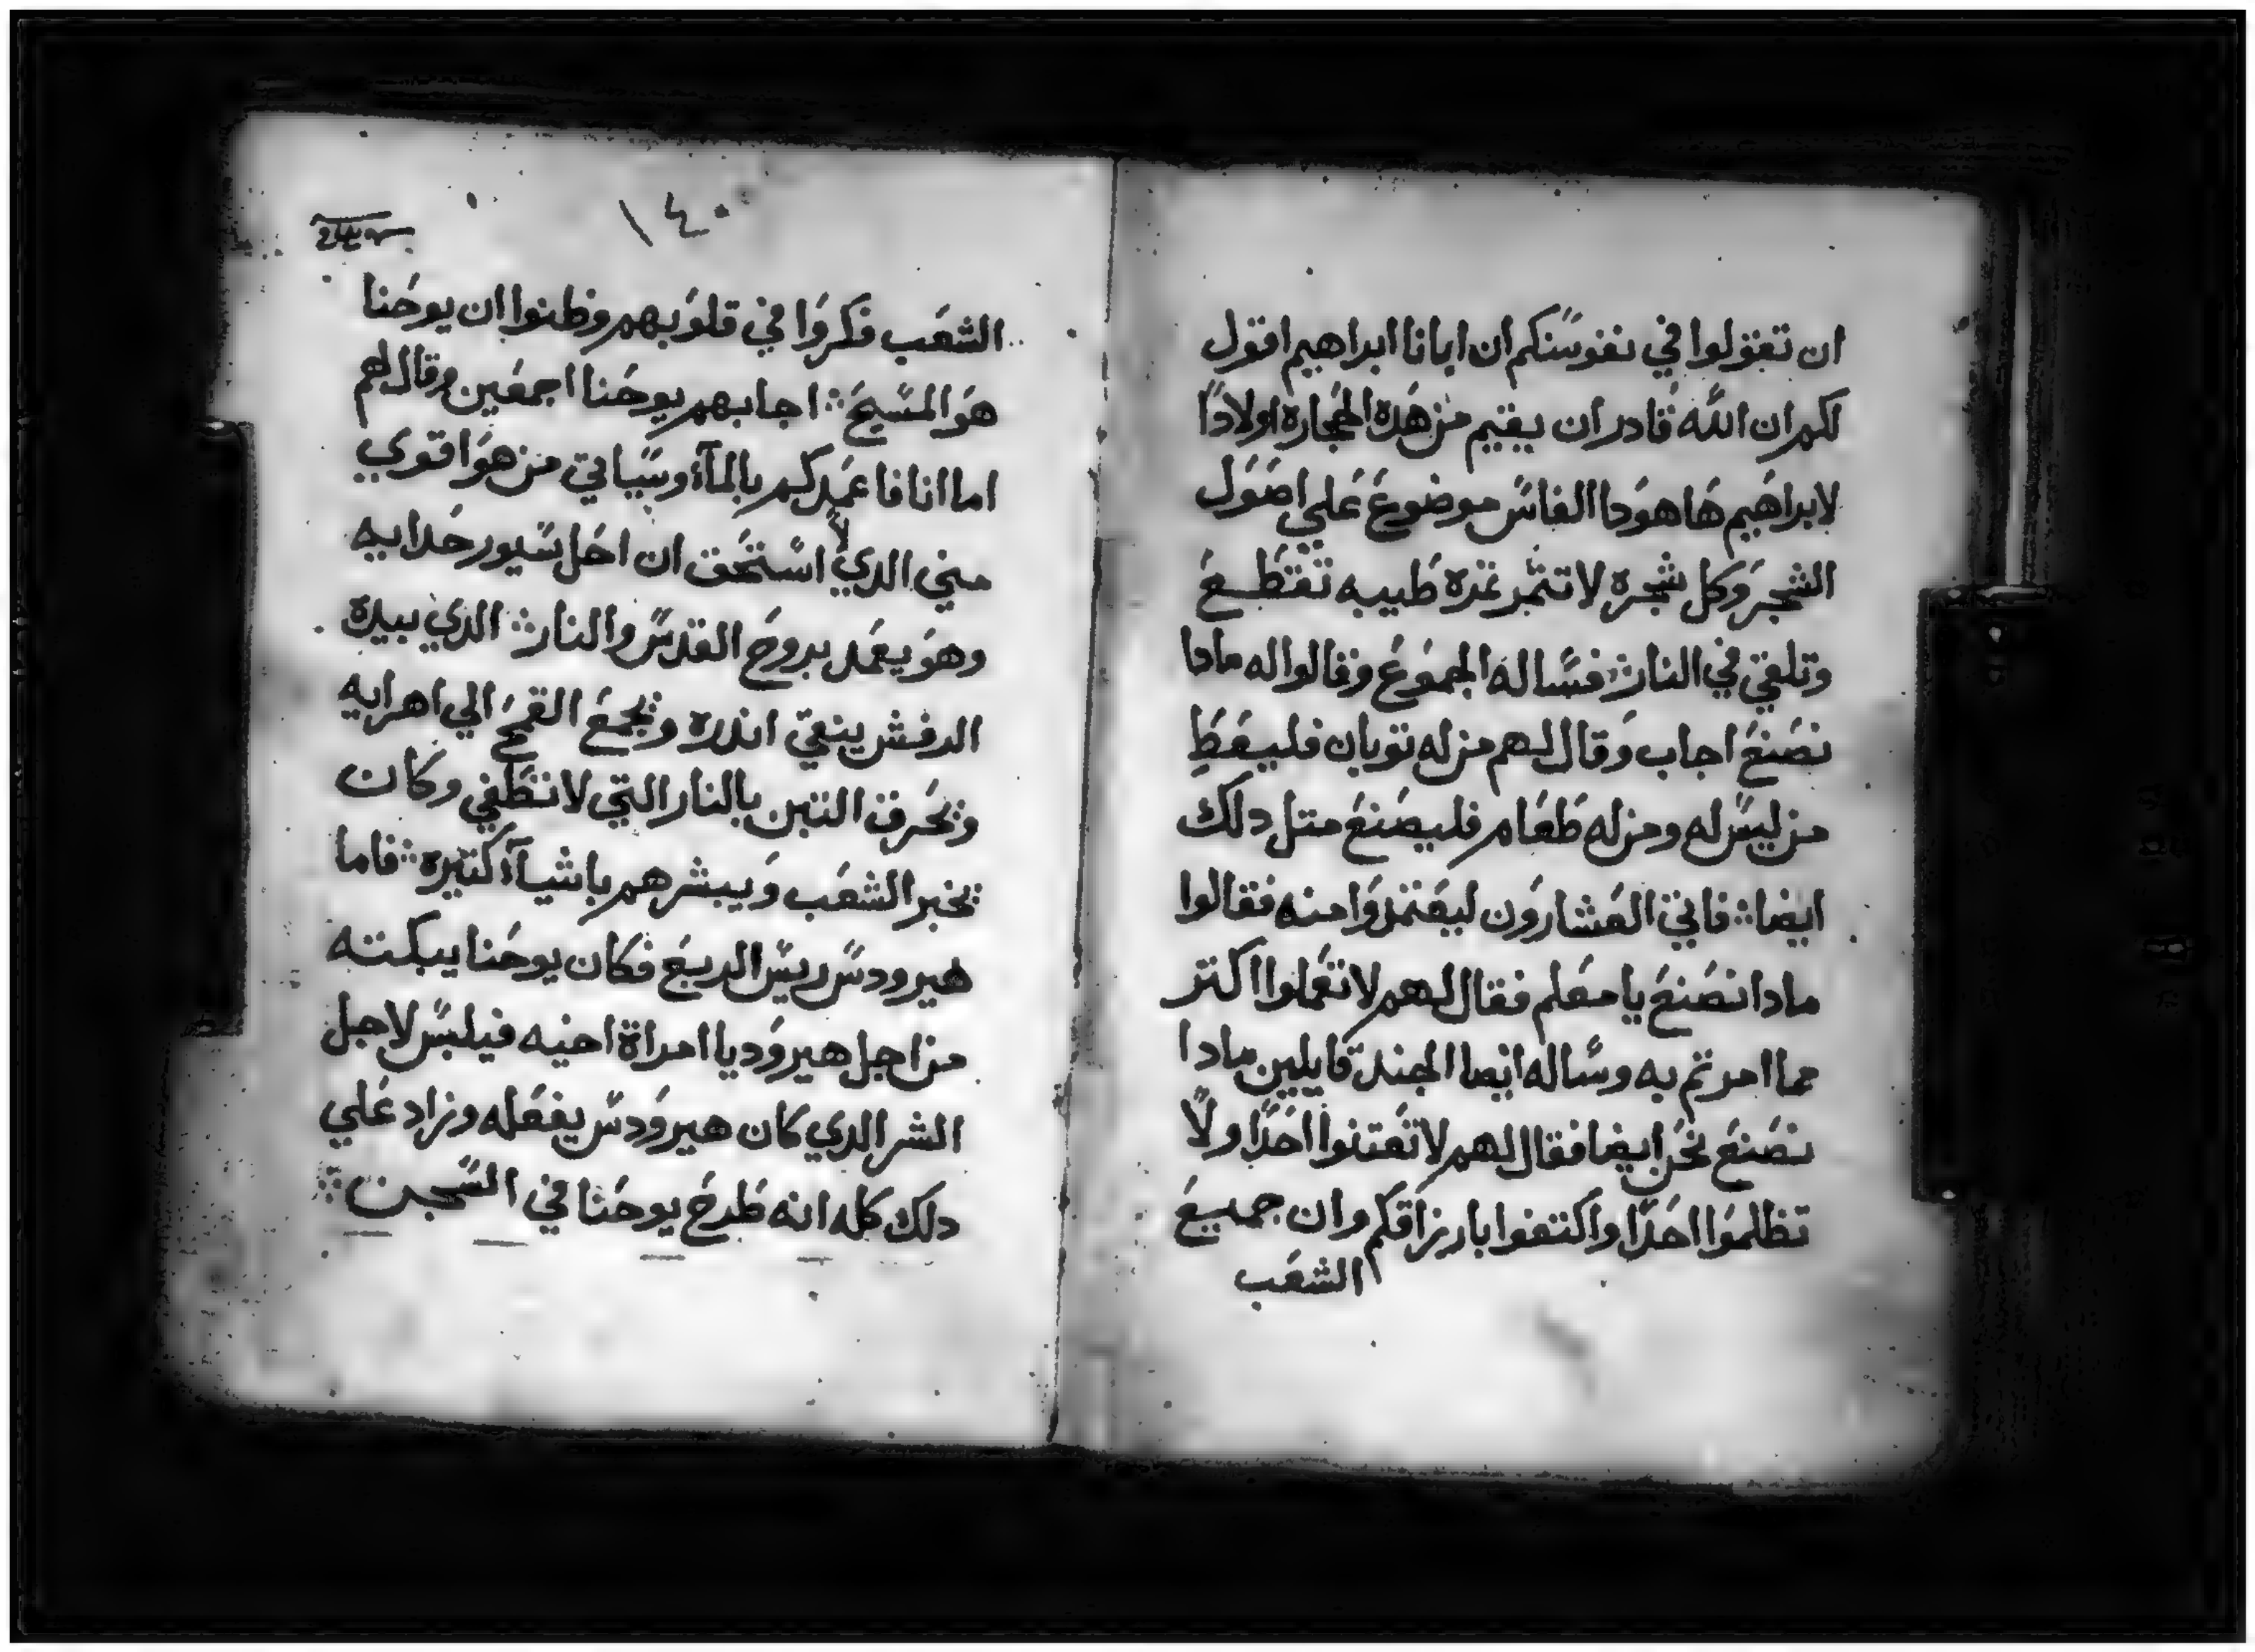 ان تقولوا في نفوسكم ان ابانا ابراهيم اقول
لكم ان الله قادر ان يقيم من هده الحجاره اولادًا
لابراهيم ها هودا الفاس موضوع علي اصول
الشجر وكل شجره لا تتمر تمره طيبه تقتطع
وتلقي في النار فساله الجموع وقالوا له مادا
نصنع اجاب وقال لهم من له توبان فليعط
من ليس له ومن له طعام فليصنع متل دلك
ايضا فاتي العشارون ليعتمدوا منه فقالوا
مادا نصنع يا معلم فقال لهم لا تعملوا اكتر
مما امرتم به وساله ايضا الجند قايلين مادا
نصنع نحن ايضا فقال لهم لا تعتنوا احدًا ولا
تظلموا احدًا واكتفوا بارزاقكم وان جميع
الشعب
١٤٠
الشعب فكروا في قلوبهم وظنوا ان يوحنا
هو المسيح اجابهم يوحنا اجمعين وقال لهم
اما انا فاعمدكم بالمآء وسياتي من هو اقوي
مني الدي لا استحق ان احل سيور حدايه
وهو يعمد بروح القدس والنار الدي بيده
الرفش ينقي اندره ويجمع القمح الي اهرايه
ويحرق التبن بالنار التي لا تطفي وكان
يخبر الشعب ويبشرهم باشيآء كتيره فاما
هيرودس ريس الربع فكان يوحنا يبكته
من اجل هيروديا امراة اخيه فيلبس لاجل
الشر الدي كان هيرودس يفعله وزاد علي
دلك كله انه طرح يوحنا في السجن